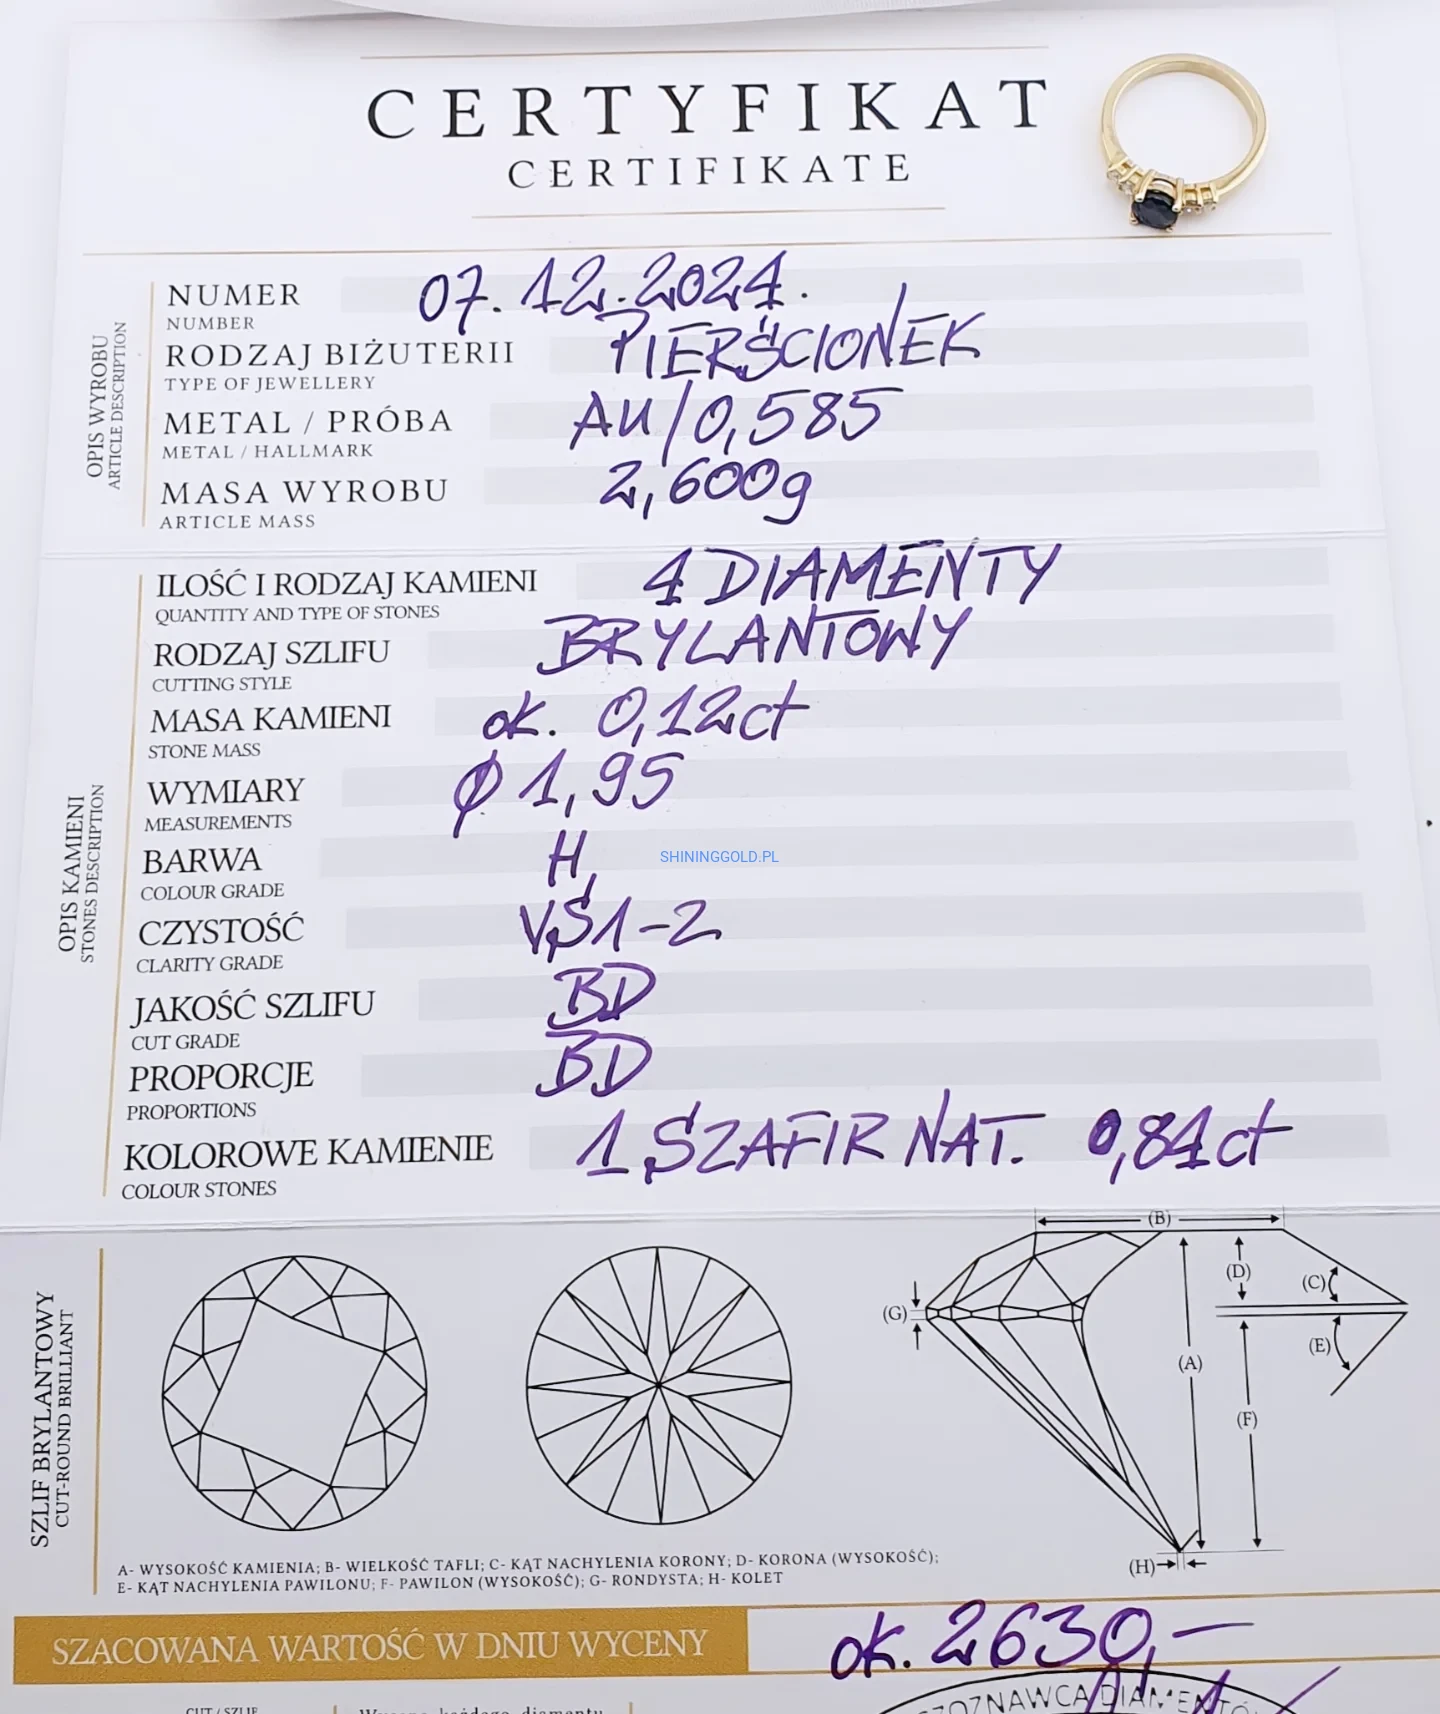 CERTYFIKAT
CERTIFIKATE
OPIS WYROBU
ARTICLE DESCRIPTION
NUMER 07.12.2024.
NUMBER
RODZAJ BIŻUTERII PIERŚCIONEK
TYPE OF JEWELLERY
METAL / PRÓBA AU/0,585
METAL / HALLMARK
MASA WYROBU 2,600g
ARTICLE MASS
OPIS KAMIENI
STONES DESCRIPTION
ILOŚĆ I RODZAJ KAMIENI 4 DIAMENTY
QUANTITY AND TYPE OF STONES
RODZAJ SZLIFU BRYLANTOWY
CUTTING STYLE
MASA KAMIENI ok. 0,12ct
STONE MASS
WYMIARY Ø 1,95
MEASUREMENTS
BARWA H
COLOUR GRADE
SHININGGOLD.PL
CZYSTOŚĆ VS1-2
CLARITY GRADE
JAKOŚĆ SZLIFU BD
CUT GRADE
PROPORCJE BD
PROPORTIONS
KOLOROWE KAMIENIE 1 SZAFIR NAT. 0,84ct
COLOUR STONES
SZLIF BRYLANTOWY
CUT-ROUND BRILLIANT
(B)
(D)
(C)
(G)
(E)
(A)
(F)
(H)
A- WYSOKOŚĆ KAMIENIA; B- WIELKOŚĆ TAFLI; C- KĄT NACHYLENIA KORONY; D- KORONA (WYSOKOŚĆ);
E- KĄT NACHYLENIA PAWILONU; F- PAWILON (WYSOKOŚĆ); G- RONDYSTA; H- KOLET
SZACOWANA WARTOŚĆ W DNIU WYCENY ok. 2630,-
CUT / SZLIF
Wycena każdego diamentu